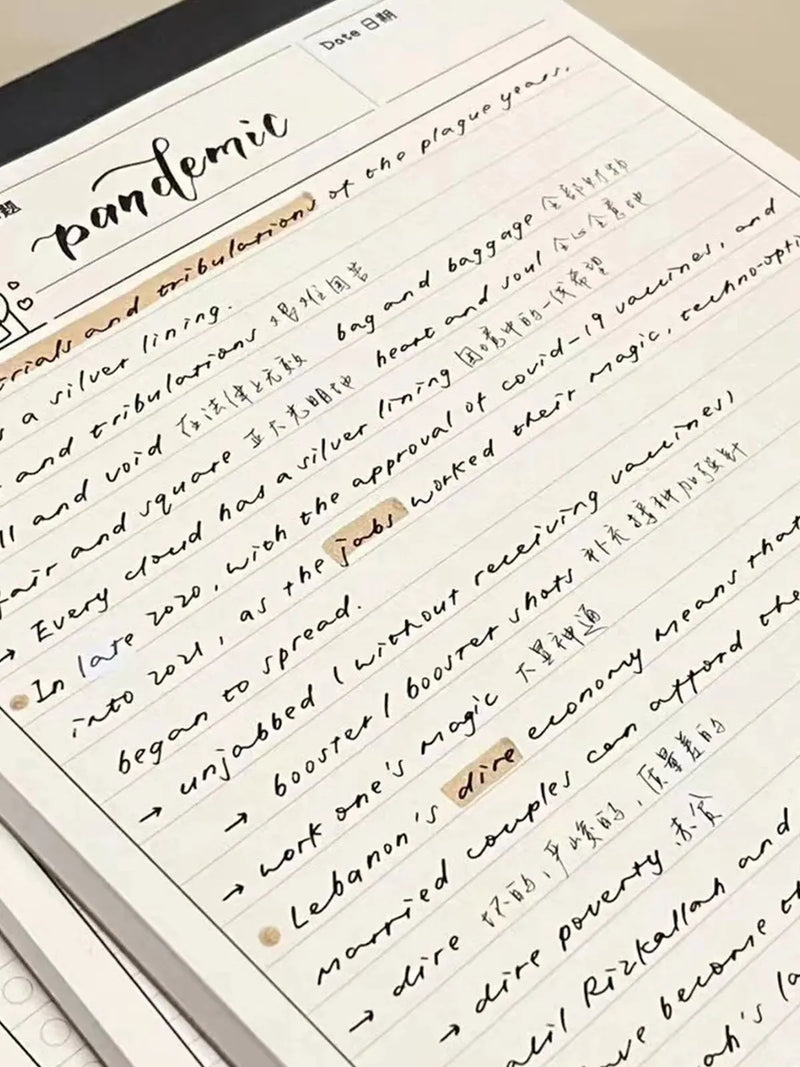 Date 日期
题
pandemic
trials and tribulations of the plague years,
a silver lining.
and tribulations 艰难困苦 bag and baggage 全部财物
and void 在法律上无效 heart and soul 全心全意地
fair and square 正大光明地
→ Every cloud has a silver lining 困境中的一线希望
In late 2020, with the approval of covid-19 vaccines, and
into 2021, as the jabs worked their magic, techno-opti
began to spread.
→ unjabbed (without receiving vaccines)
→ booster / booster shots 补充接种加强针
→ work one's magic 大显神通
Lebanon's dire economy means that
married couples can afford the
→ dire 坏的,严峻的,质量差的
→ dire poverty 赤贫
alil Rizkallah and
ave become th
ah's la